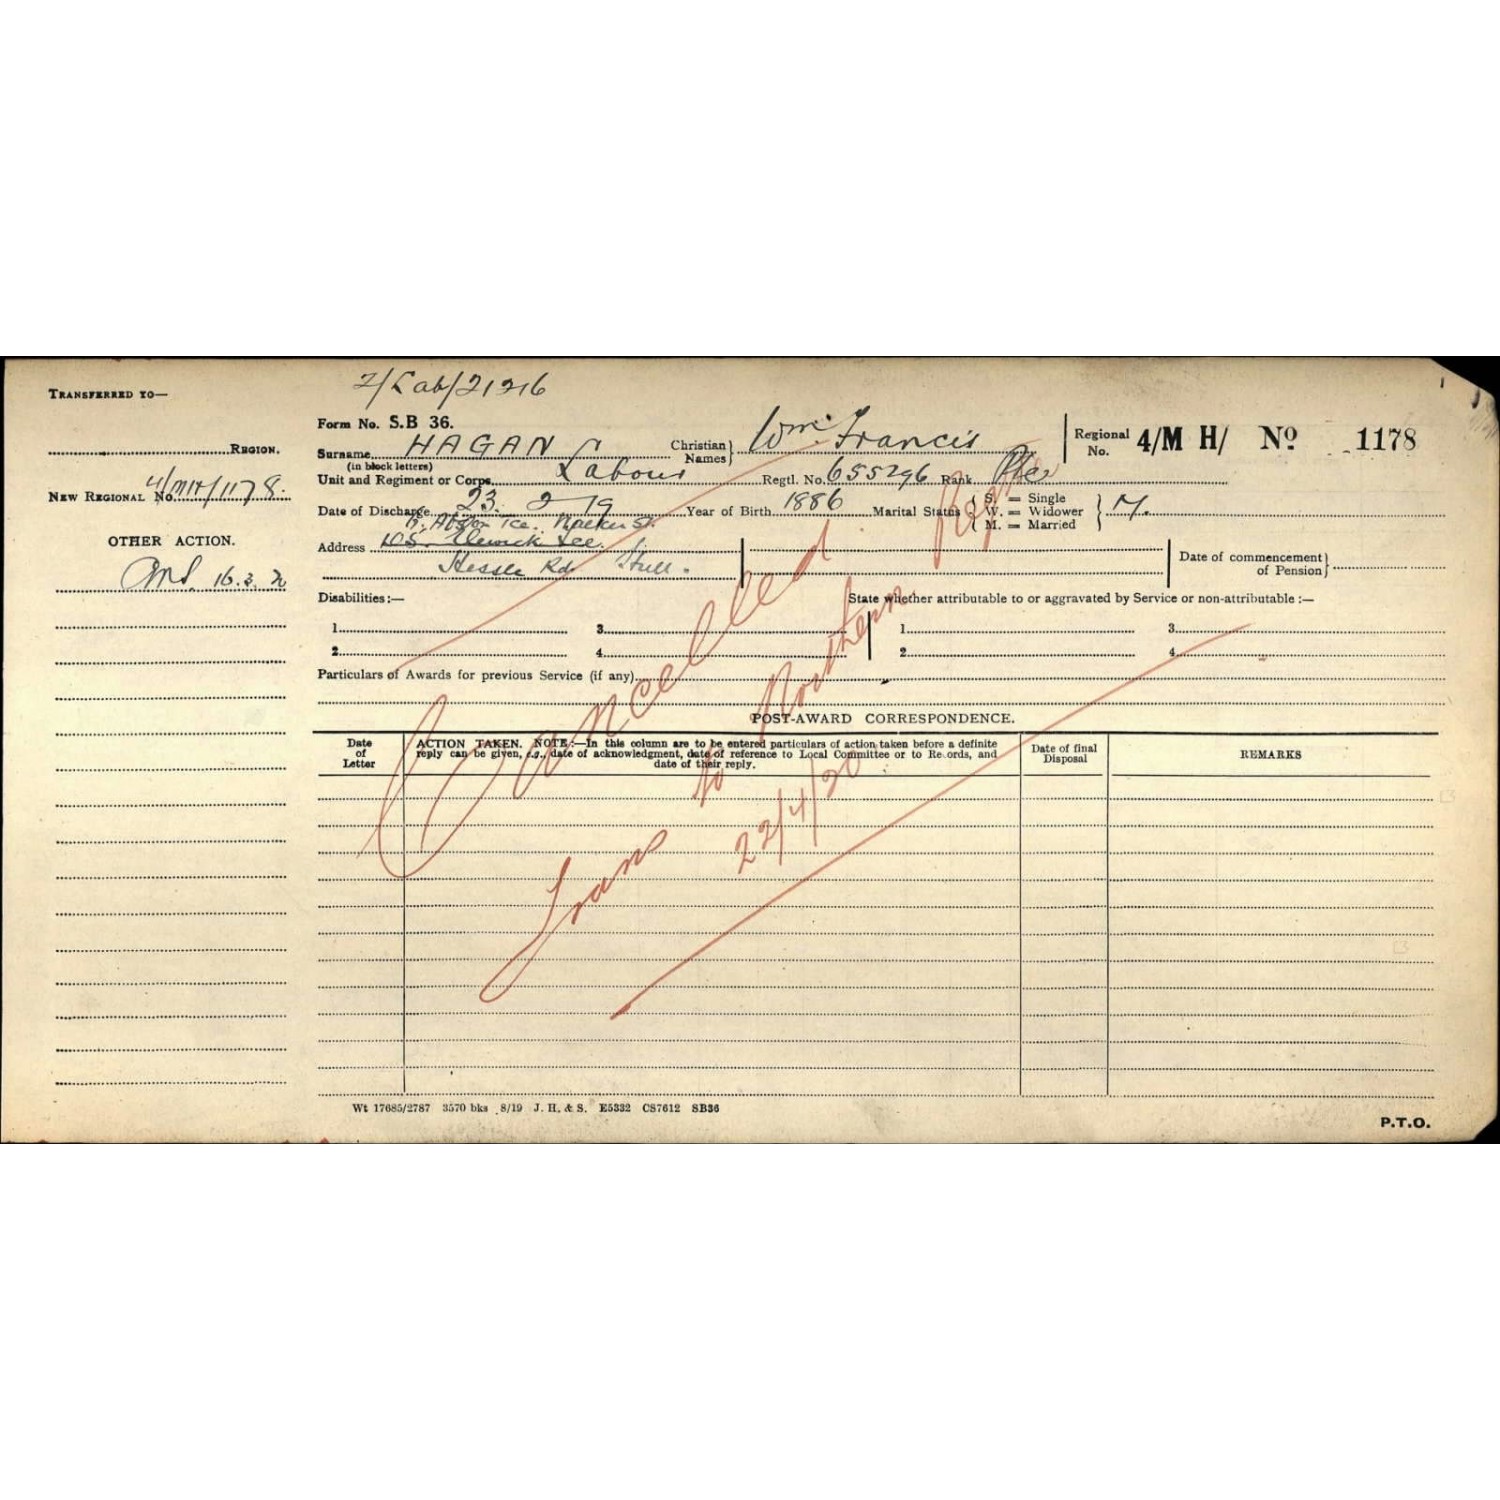 TRANSFERRED TO—
REGION.
NEW REGIONAL No. 4/MH/1178.
OTHER ACTION.
16.3.20
2/Lab/21216
Form No. S.B 36.
Surname HAGAN
(in block letters)
Christian Names} Wm. Francis
Regional No. 4/M H/ No 1178
Unit and Regiment or Corps Labour
Regtl. No. 655296 Rank Pte
Date of Discharge 23. 2 19 Year of Birth 1886 Marital Status { S. = Single W. = Widower M. = Married } M.
Tce.
Address 105
Hessle Rd Hull.
Date of commencement of Pension}
Disabilities:—
State whether attributable to or aggravated by Service or non-attributable:—
1. 3. 1. 3.
2. 4. 2. 4.
Particulars of Awards for previous Service (if any)
POST-AWARD CORRESPONDENCE.
Date of Letter
ACTION TAKEN. NOTE:—In this column are to be entered particulars of action taken before a definite
reply can be given, e.g., date of acknowledgment, date of reference to Local Committee or to Records, and
date of their reply.
Date of final Disposal
REMARKS
Cancelled
Trans to Northern Region
22/4/20
Wt 17685/2787 3570 bks 8/19 J. H. & S. E5332 CS7612 SB36
P.T.O.